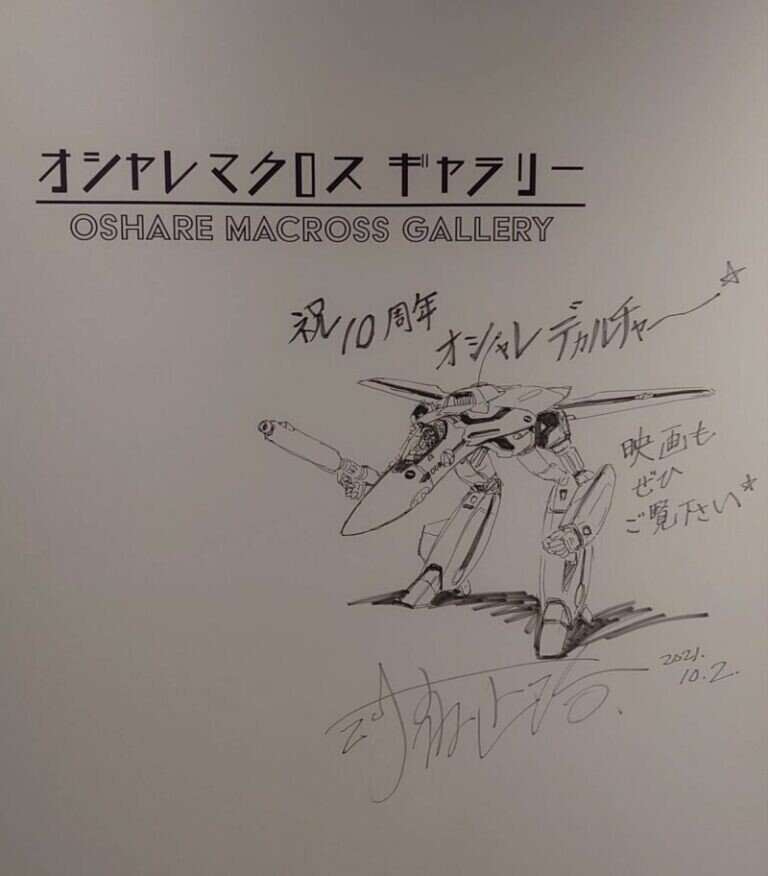 オシャレマクロス ギャラリー
OSHARE MACROSS GALLERY
祝10周年
オシャレ デカルチャー☆
映画も
ぜひ
ご覧下さい☆
2021.
10.2.